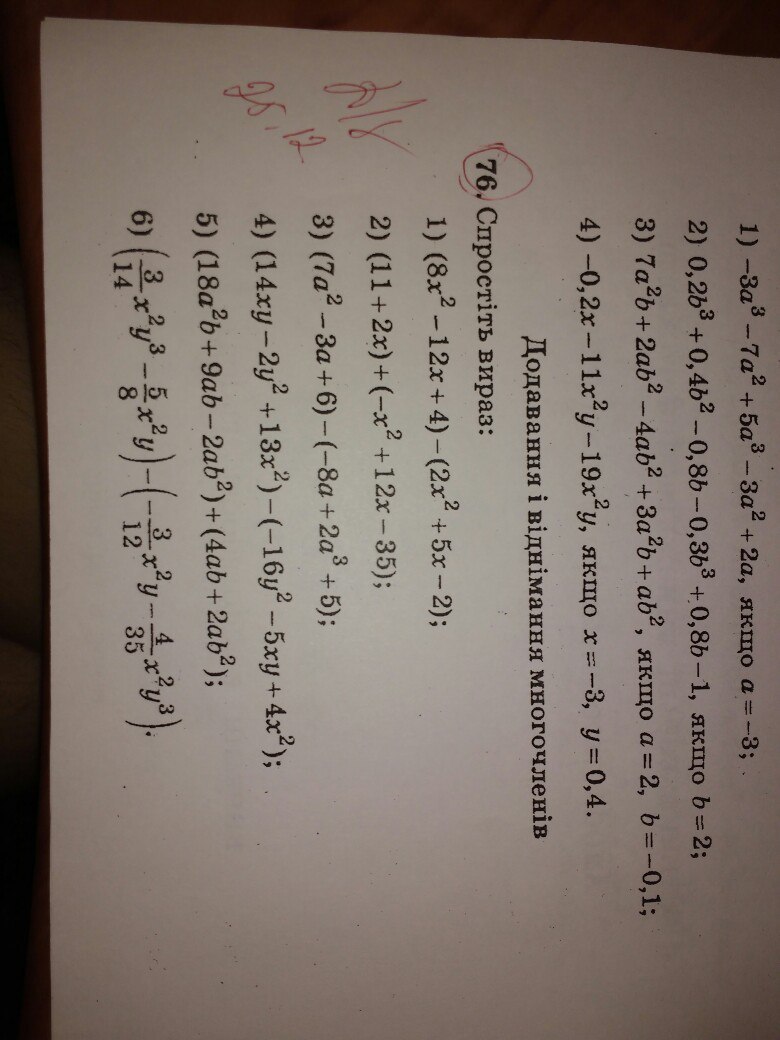 1) −3a³ − 7a² + 5a³ − 3a² + 2a, якщо a = −3;
2) 0,2b³ + 0,4b² − 0,8b − 0,3b³ + 0,8b − 1, якщо b = 2;
3) 7a²b + 2ab² − 4ab² + 3a²b + ab², якщо a = 2, b = −0,1;
4) −0,2x − 11x²y − 19x²y, якщо x = −3, y = 0,4.
Додавання і віднімання многочленів
76. Спростіть вираз:
1) (8x² − 12x + 4) − (2x² + 5x − 2);
2) (11 + 2x) + (−x² + 12x − 35);
3) (7a² − 3a + 6) − (−8a + 2a³ + 5);
4) (14xy − 2y² + 13x²) − (−16y² − 5xy + 4x²);
5) (18a²b + 9ab − 2ab²) + (4ab + 2ab²);
6) (3/14 x²y³ − 5/8 x²y) − (−3/12 x²y − 4/35 x²y³).
25.12